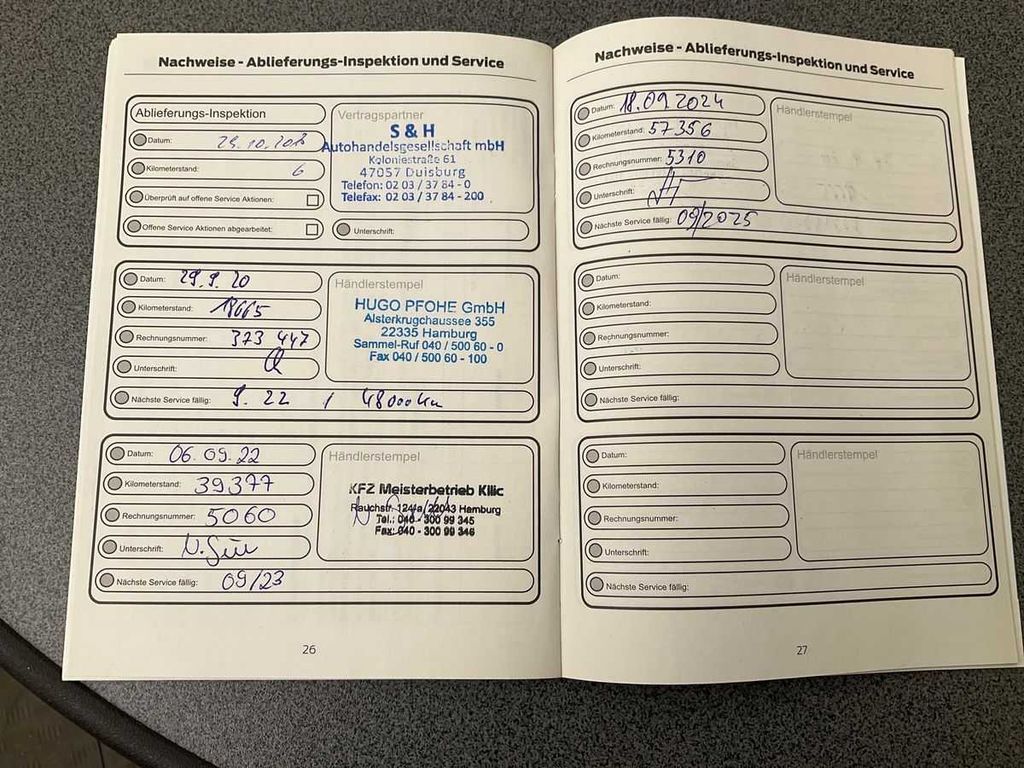 Nachweise - Ablieferungs-Inspektion und Service
Ablieferungs-Inspektion
Datum: 29.10.2018
Kilometerstand: 6
Überprüft auf offene Service Aktionen:
Offene Service Aktionen abgearbeitet:
Vertragspartner
S & H
Autohandelsgesellschaft mbH
Koloniestraße 61
47057 Duisburg
Telefon: 02 03 / 37 84 - 0
Telefax: 02 03 / 37 84 - 200
Unterschrift:
Datum: 29.9.20
Kilometerstand: 18665
Rechnungsnummer: 373 447
Unterschrift:
Nächste Service fällig: 9.22 / 48000km
Händlerstempel
HUGO PFOHE GmbH
Alsterkrugchaussee 355
22335 Hamburg
Sammel-Ruf 040 / 500 60 - 0
Fax 040 / 500 60 - 100
Datum: 06.09.22
Kilometerstand: 39377
Rechnungsnummer: 5060
Unterschrift:
Nächste Service fällig: 09/23
Händlerstempel
KFZ Meisterbetrieb Kilic
Rauchstr. 124/a, 22043 Hamburg
Tel.: 040 - 300 99 345
Fax: 040 - 300 99 346
26
Nachweise - Ablieferungs-Inspektion und Service
Datum: 18.09.2024
Kilometerstand: 57356
Rechnungsnummer: 5310
Unterschrift:
Nächste Service fällig: 09/2025
Händlerstempel
Datum:
Kilometerstand:
Rechnungsnummer:
Unterschrift:
Nächste Service fällig:
Händlerstempel
Datum:
Kilometerstand:
Rechnungsnummer:
Unterschrift:
Nächste Service fällig:
Händlerstempel
27